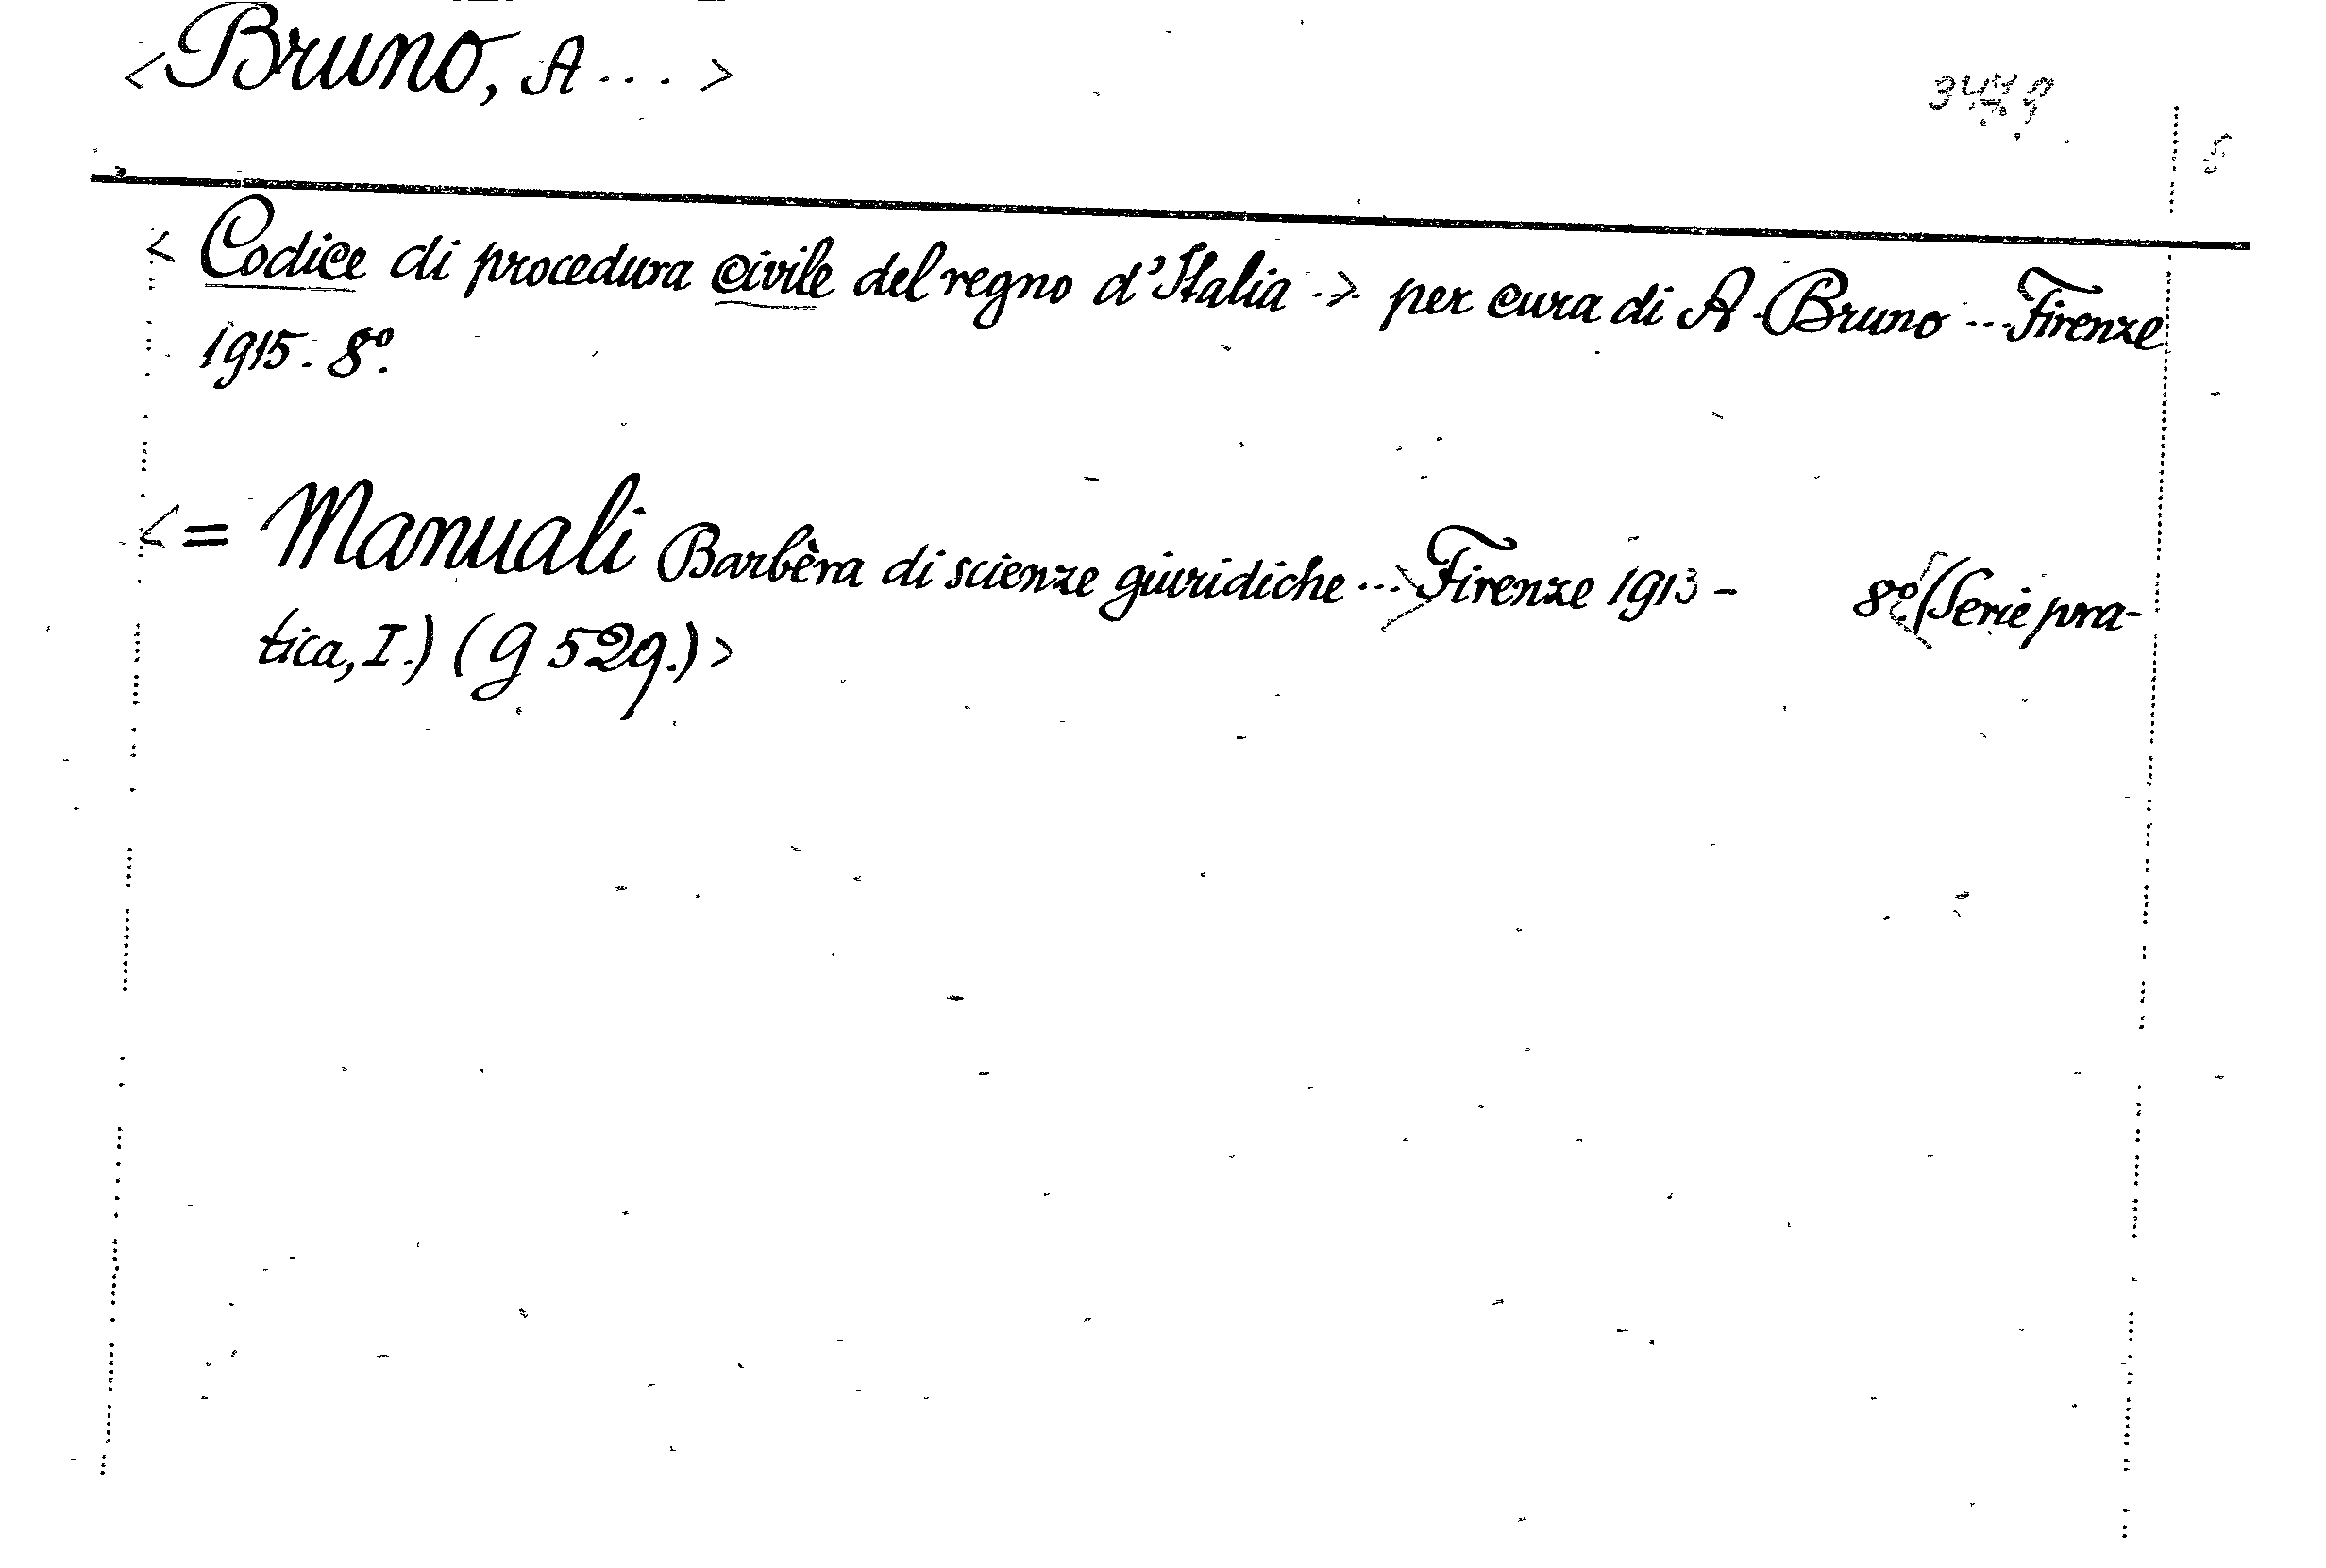 <Bruno, A...>
< Codice di procedura civile del regno d'Italia..> per cura di A. Bruno ... Firenze
1915. 8º.
<= Manuali Barbèra di scienze giuridiche ...> Firenze 1913 - 8º. (Serie pra-
tica, I.) (g 529.)>